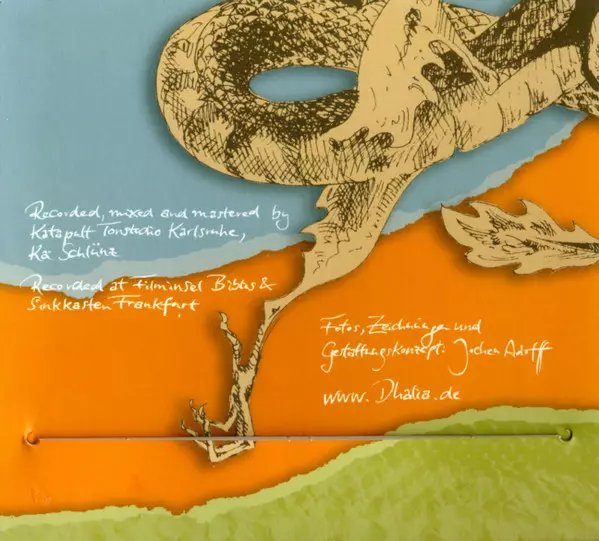 Recorded, mixed and mastered by
Katapult Tonstudio Karlsruhe,
Kai Schlünz
Recorded at Filminsel Biblis &
Sinkkasten Frankfurt
Fotos, Zeichnungen und
Gestaltungskonzept: Jochen Adorff
www.Dhalia.de